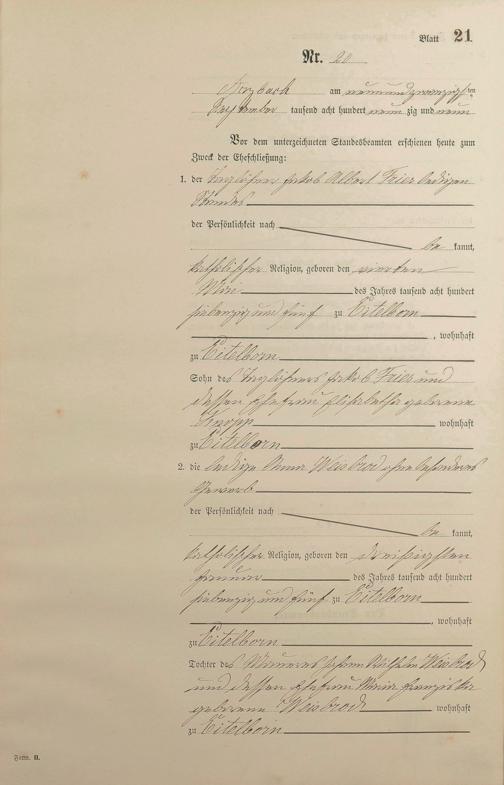 Blatt 21
Nr. 20
Arzbach am neunundzwanzigsten
September tausend acht hundert neunzig und neun
Vor dem unterzeichneten Standesbeamten erschienen heute zum
Zweck der Eheschließung:
1. der Taglöhner Jakob Albert Feier ledigen
Standes
der Persönlichkeit nach
be kannt,
katholischer Religion, geboren den vierten
des Jahres tausend acht hundert
siebenzig und fünf zu Eitelborn
, wohnhaft
zu Eitelborn
Sohn des Taglöhners Jakob Feier und
dessen Ehefrau Elisabetha geborene
Knopp wohnhaft
zu Eitelborn
2. die ledige Anna Weisbrod ohne besonderes
Gewerb
der Persönlichkeit nach
be kannt,
katholischer Religion, geboren den dreißigsten
Januar des Jahres tausend acht hundert
siebenzig und fünf zu Eitelborn
, wohnhaft
zu Eitelborn
Tochter des Maurers Johann Wilhelm Weisbrod
und dessen Ehefrau Maria Franziska
geborene Weisbrod wohnhaft
zu Eitelborn
Form. B.